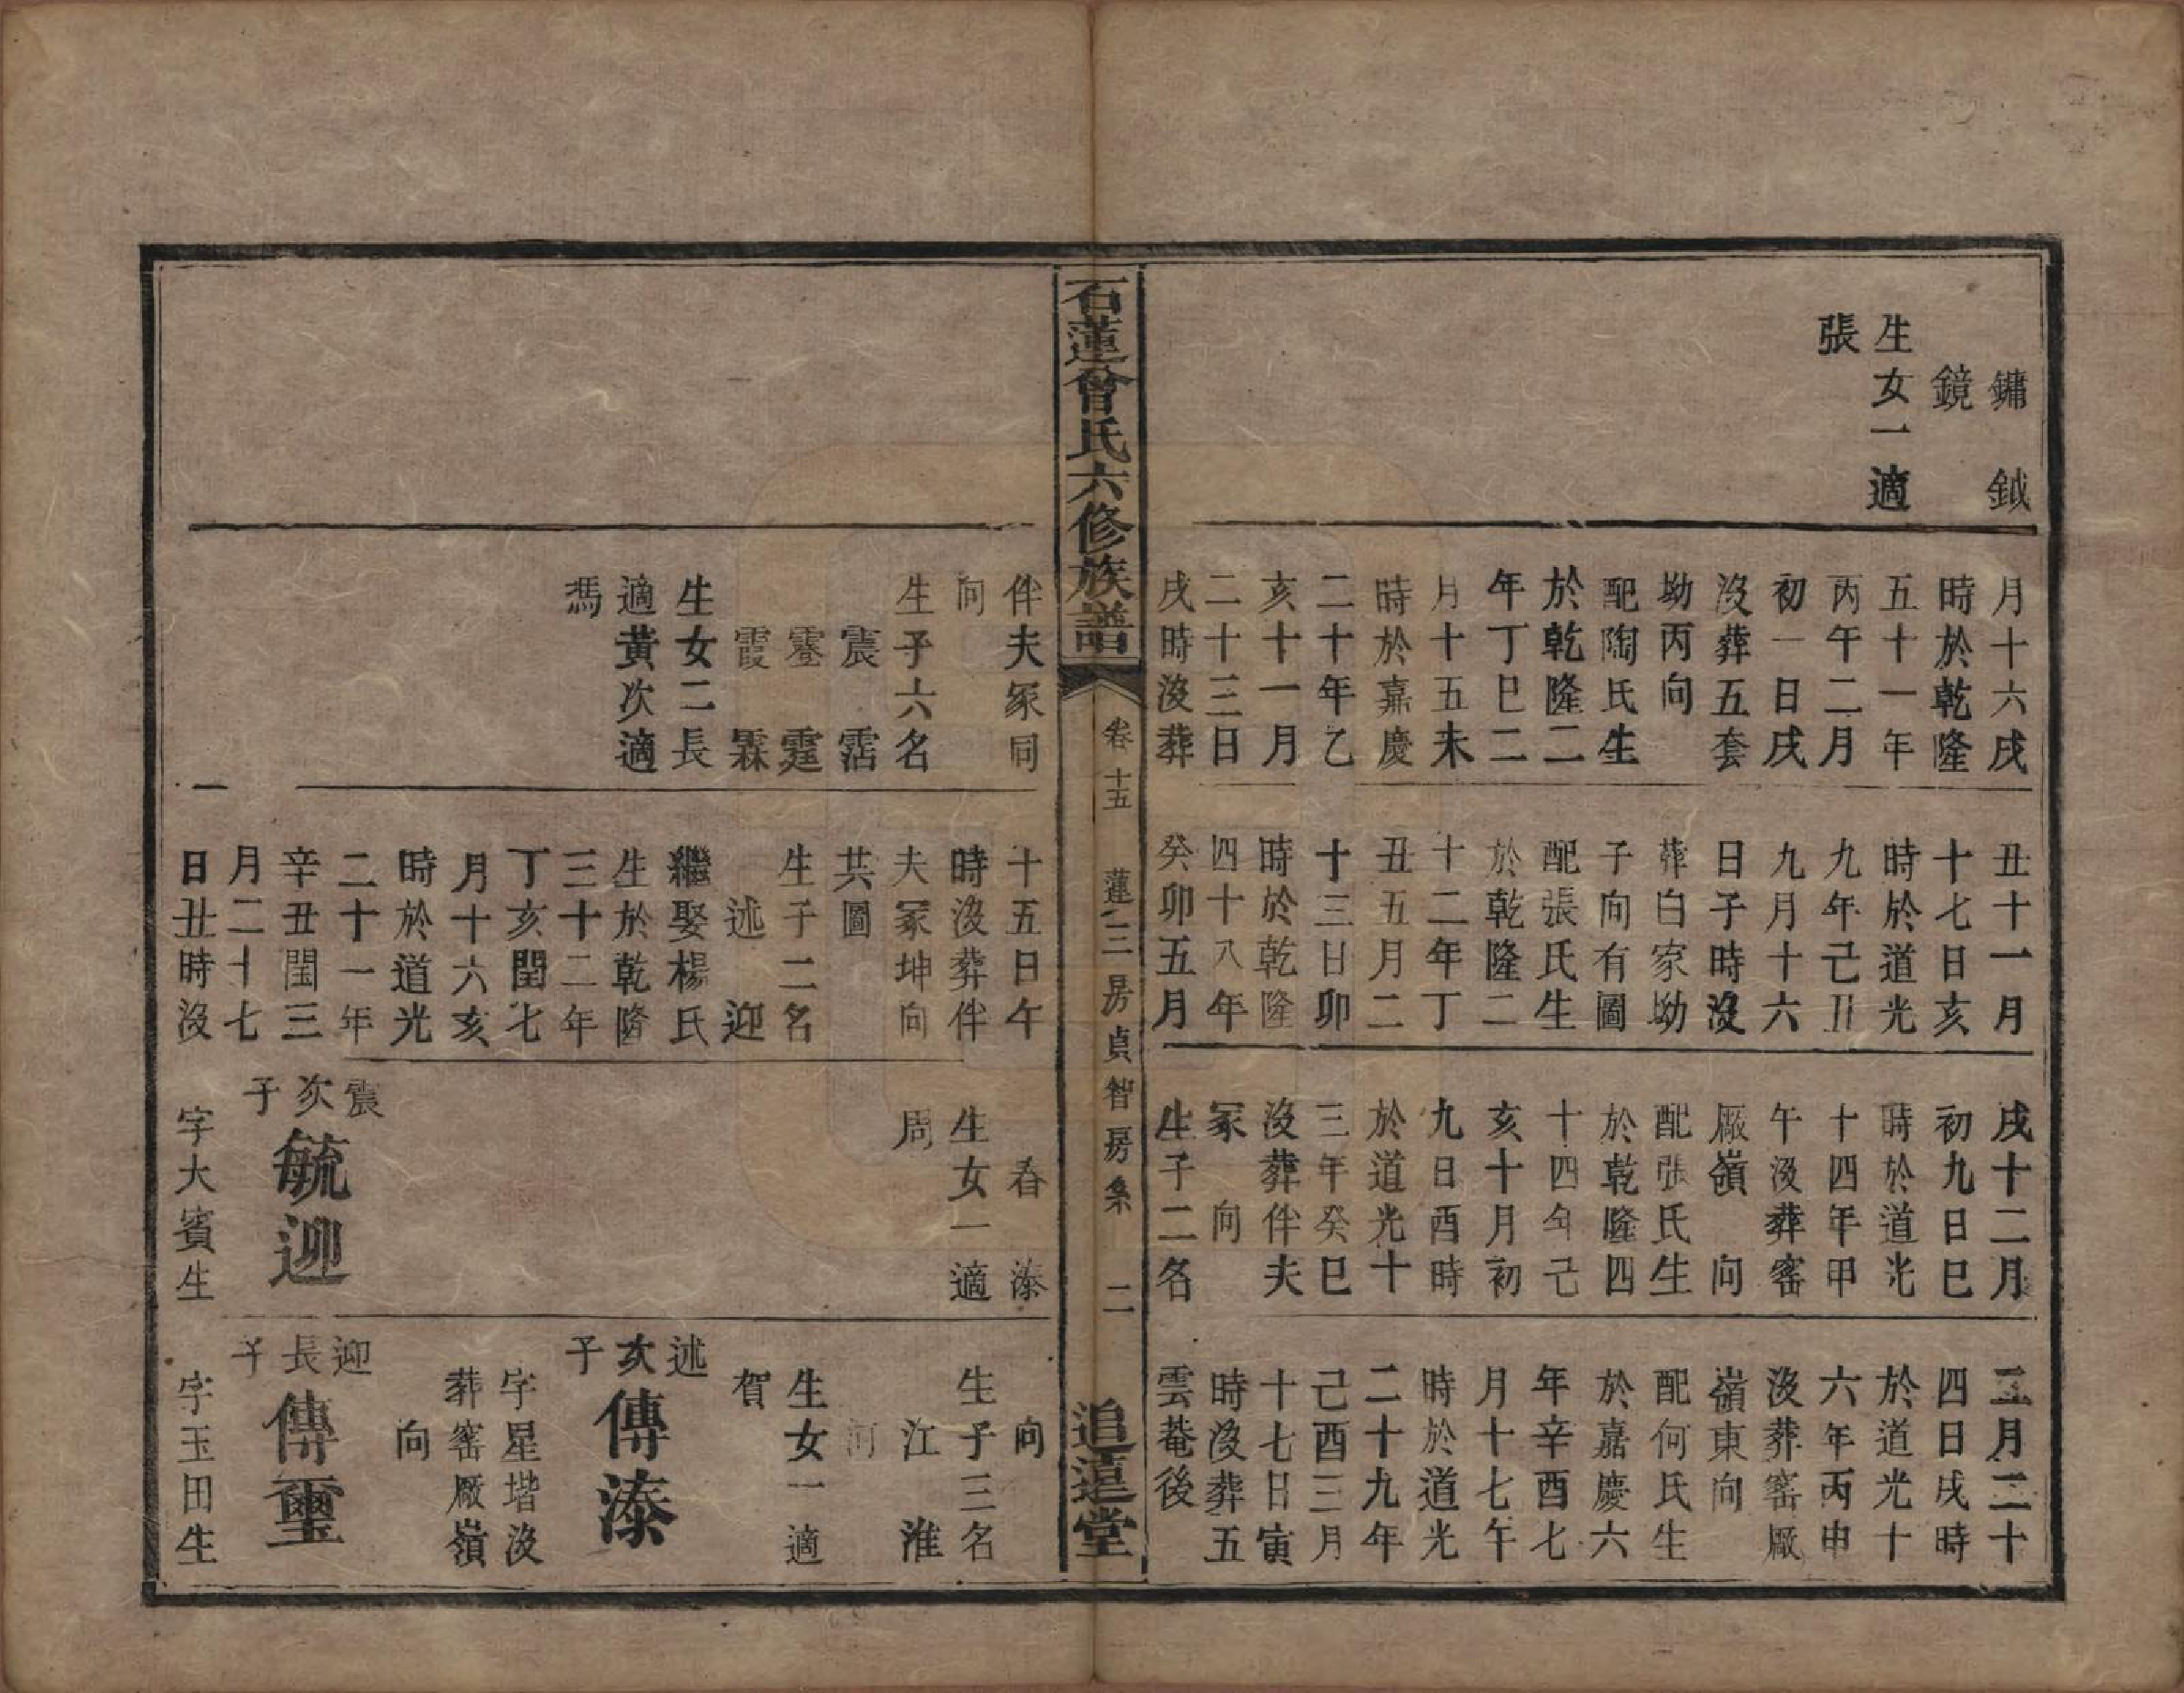 鏞　鉞
鏡
生女一適
張
月十六戌
時於乾隆
五十一年
丙午二月
初一日戌
沒葬五套
坳丙向
配陶氏生
於乾隆二
年丁巳二
月十五未
時於嘉慶
二十年乙
亥十一月
二十三日
戌時沒葬
丑十一月
十七日亥
時於道光
九年己丑
九月十六
日子時沒
葬白家坳
子向有圖
配張氏生
於乾隆二
十二年丁
丑五月二
十三日卯
時於乾隆
四十八年
癸卯五月
戌十二月
初九日巳
時於道光
十四年甲
午沒葬窰
廠嶺　向
配張氏生
於乾隆四
十四年己
亥十月初
九日酉時
於道光十
三年癸巳
沒葬伴夫
冢　向
生子二名
二月二十
四日戌時
於道光十
六年丙申
沒葬窰廠
嶺東向
配何氏生
於嘉慶六
年辛酉七
月十七午
時於道光
二十九年
己酉三月
十七日寅
時沒葬五
雲菴後
石蓮曾氏六修族譜
卷十五　蓮三房貞智房系　二
追遠堂
伴夫冢同
向
生子六名
震　霑
霆
霞　霖
生女二長
適黃次適
馮
十五日午
時沒葬伴
夫冢坤向
共圖
生子二名
述　迎
繼娶楊氏
生於乾隆
三十二年
丁亥閏七
月十六亥
時於道光
二十一年
辛丑閏三
月二十七
日丑時沒
春　溱
生女一適
周
震次子
毓迎
字大賓生
向
生子三名
江　淮
河
生女一適
賀
述次子
傳溱
字星堦沒
葬窰廠嶺
向
迎長子
傳璽
字玉田生